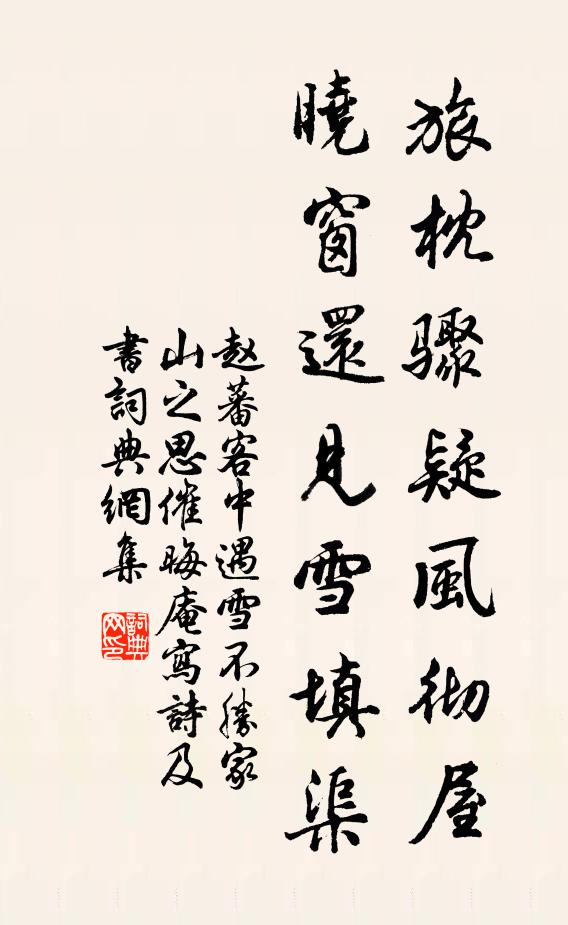 旅枕驟疑風彻屋
曉窗還見雪填渠
赵蕃客中遇雪不勝家
山之思催晦庵寫詩及
書詞典網集
詞典
网印